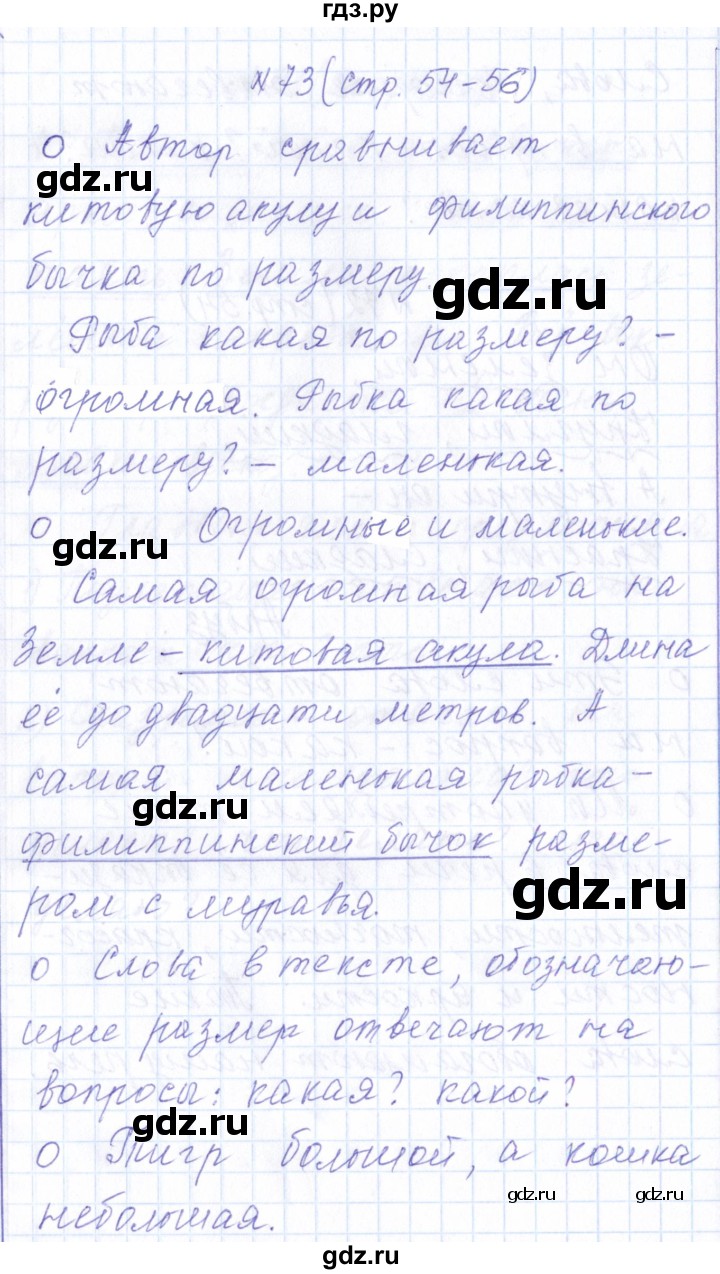 гдз.ру
№73 (стр. 54-56)
о Автор сравнивает
gdz.ru
китовую акулу и филиппинского
бычка по размеру.
gdz.ru
Рыба какая по размеру? -
огромная. Рыбка какая по
размеру? - маленькая.
о Огромные и маленькие.
gdz.ru
Самая огромная рыба на
Земле - китовая акула. Длина
её до двадцати метров. А
самая маленькая рыбка -
gdz.ru
филиппинский бычок разме-
gdz.ru
ром с муравья.
о Слова в тексте, обозначаю-
щие размер отвечают на
вопросы: какая? какой?
gdz.ru
о Тигр большой, а кошка
gdz.ru gdz.ru
небольшая.
gdz.ru